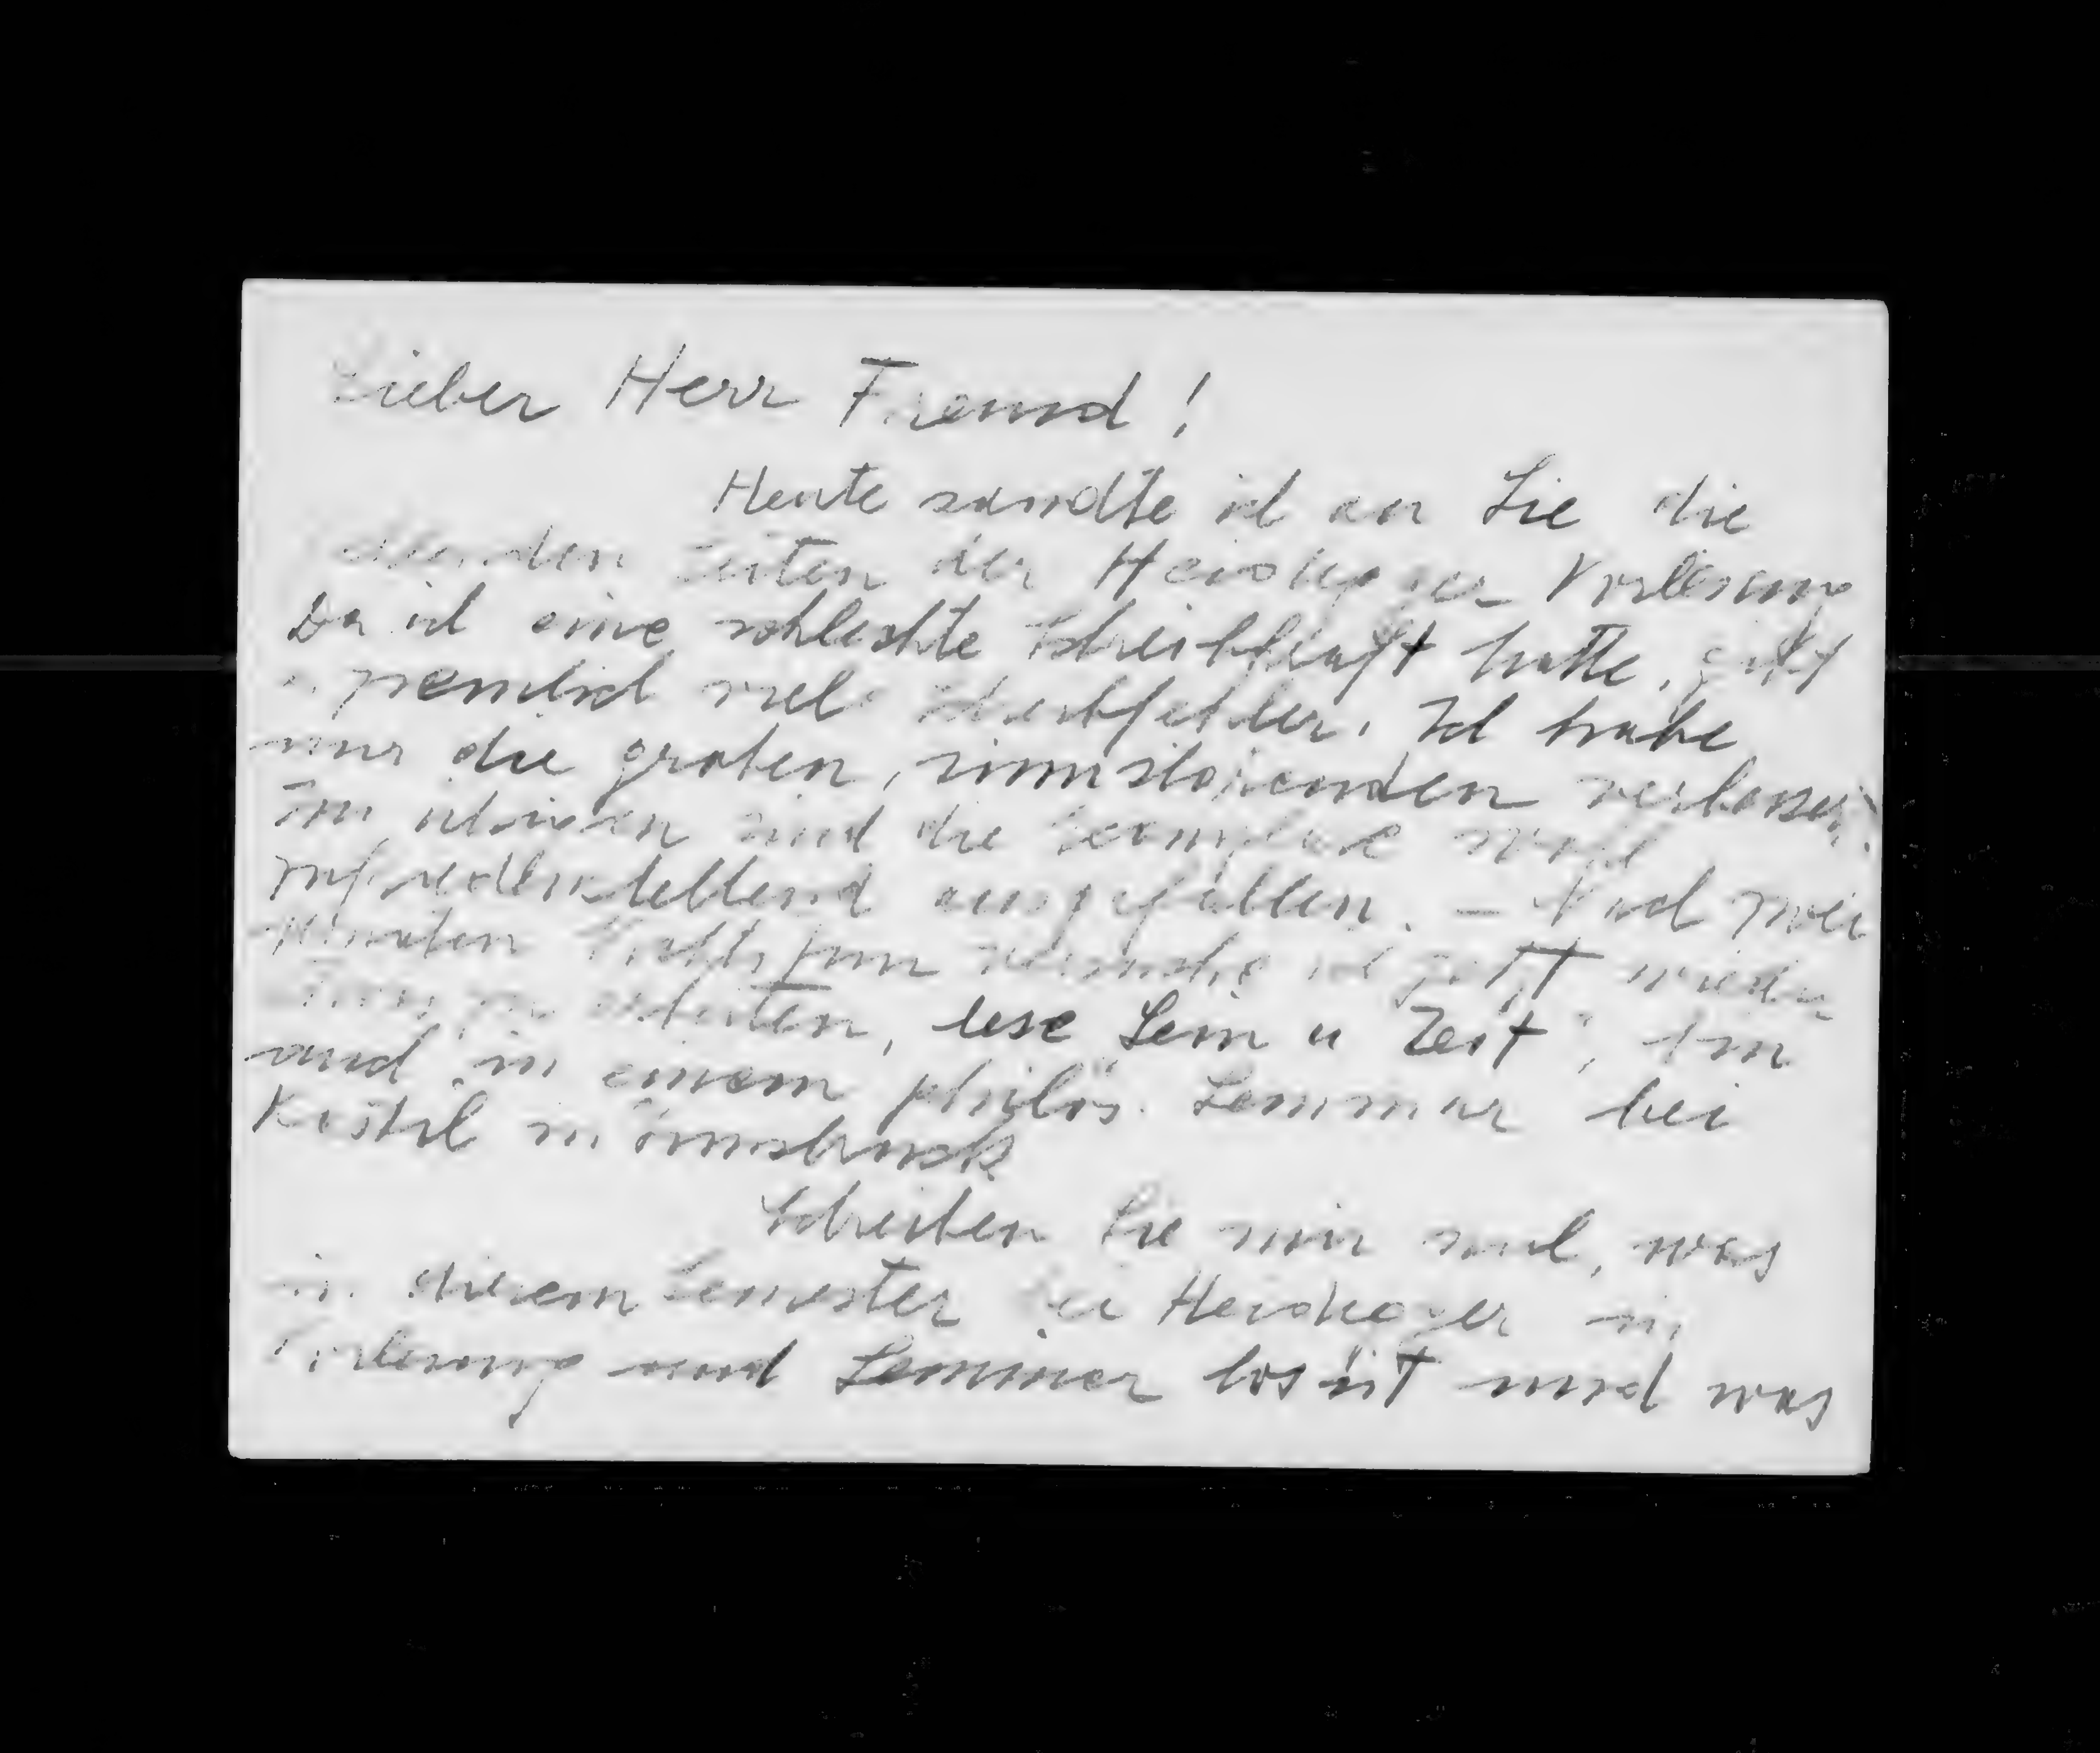 Lieber Herr Freund!
Heute sandte ich an Sie die
Seiten der Heidegger Vorlesung
Da ich eine schlechte Schreibkraft hatte, gibt
ziemlich viele Schreibfehler. Ich habe
nur die groben, sinnstörenden verbessert.
Im übrigen sind die Exemplare
zufriedenstellend ausgefallen. – Nach zwei
Monaten Nichtstun versuche ich jetzt wieder
zu arbeiten, lese "Sein u Zeit", bin
auch in einem philos. Seminar bei
in Innsbruck
Schreiben Sie mir mal, was
in diesem Semester bei Heidegger in
Vorlesung und Seminar los ist und was